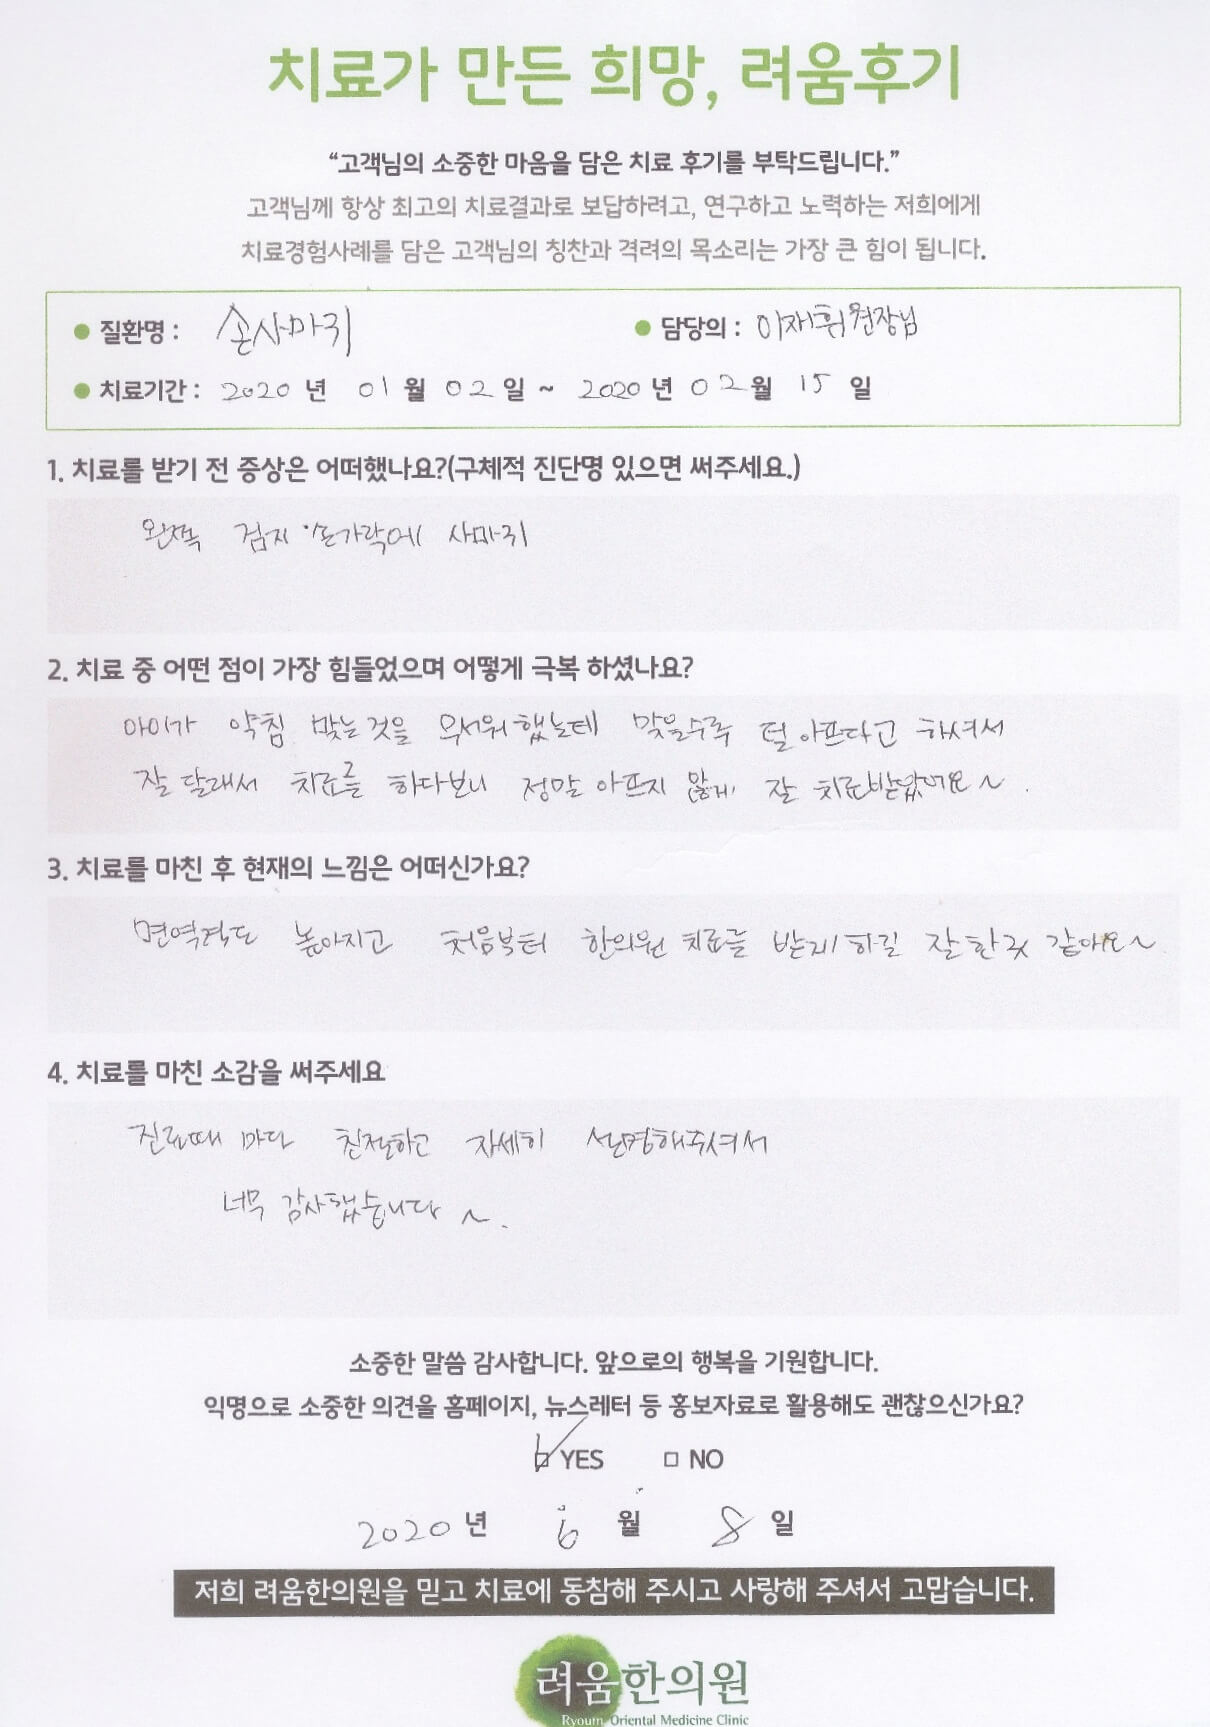 치료가 만든 희망, 려움후기
“고객님의 소중한 마음을 담은 치료 후기를 부탁드립니다.”
고객님께 항상 최고의 치료결과로 보답하려고, 연구하고 노력하는 저희에게
치료경험사례를 담은 고객님의 칭찬과 격려의 목소리는 가장 큰 힘이 됩니다.
● 질환명 : 손사마귀 ● 담당의 : 이재휘원장님
● 치료기간 : 2020 년 01 월 02 일 ~ 2020 년 02 월 15 일
1. 치료를 받기 전 증상은 어떠했나요?(구체적 진단명 있으면 써주세요.)
왼쪽 검지 손가락에 사마귀
2. 치료 중 어떤 점이 가장 힘들었으며 어떻게 극복 하셨나요?
아이가 약침 맞는것을 무서워했는데 맞을수록 덜 아프다고 하셔서
잘 달래서 치료를 하다보니 정말 아프지 않게 잘 치료받았어요~.
3. 치료를 마친 후 현재의 느낌은 어떠신가요?
면역력도 높아지고 처음부터 한의원 치료를 받게하길 잘한것 같아요~
4. 치료를 마친 소감을 써주세요
진료때 마다 친절하고 자세히 설명해주셔서
너무 감사했습니다~.
소중한 말씀 감사합니다. 앞으로의 행복을 기원합니다.
익명으로 소중한 의견을 홈페이지, 뉴스레터 등 홍보자료로 활용해도 괜찮으신가요?
☑ YES □ NO
2020 년 6 월 8 일
저희 려움한의원을 믿고 치료에 동참해 주시고 사랑해 주셔서 고맙습니다.
려움한의원
Ryoum Oriental Medicine Clinic